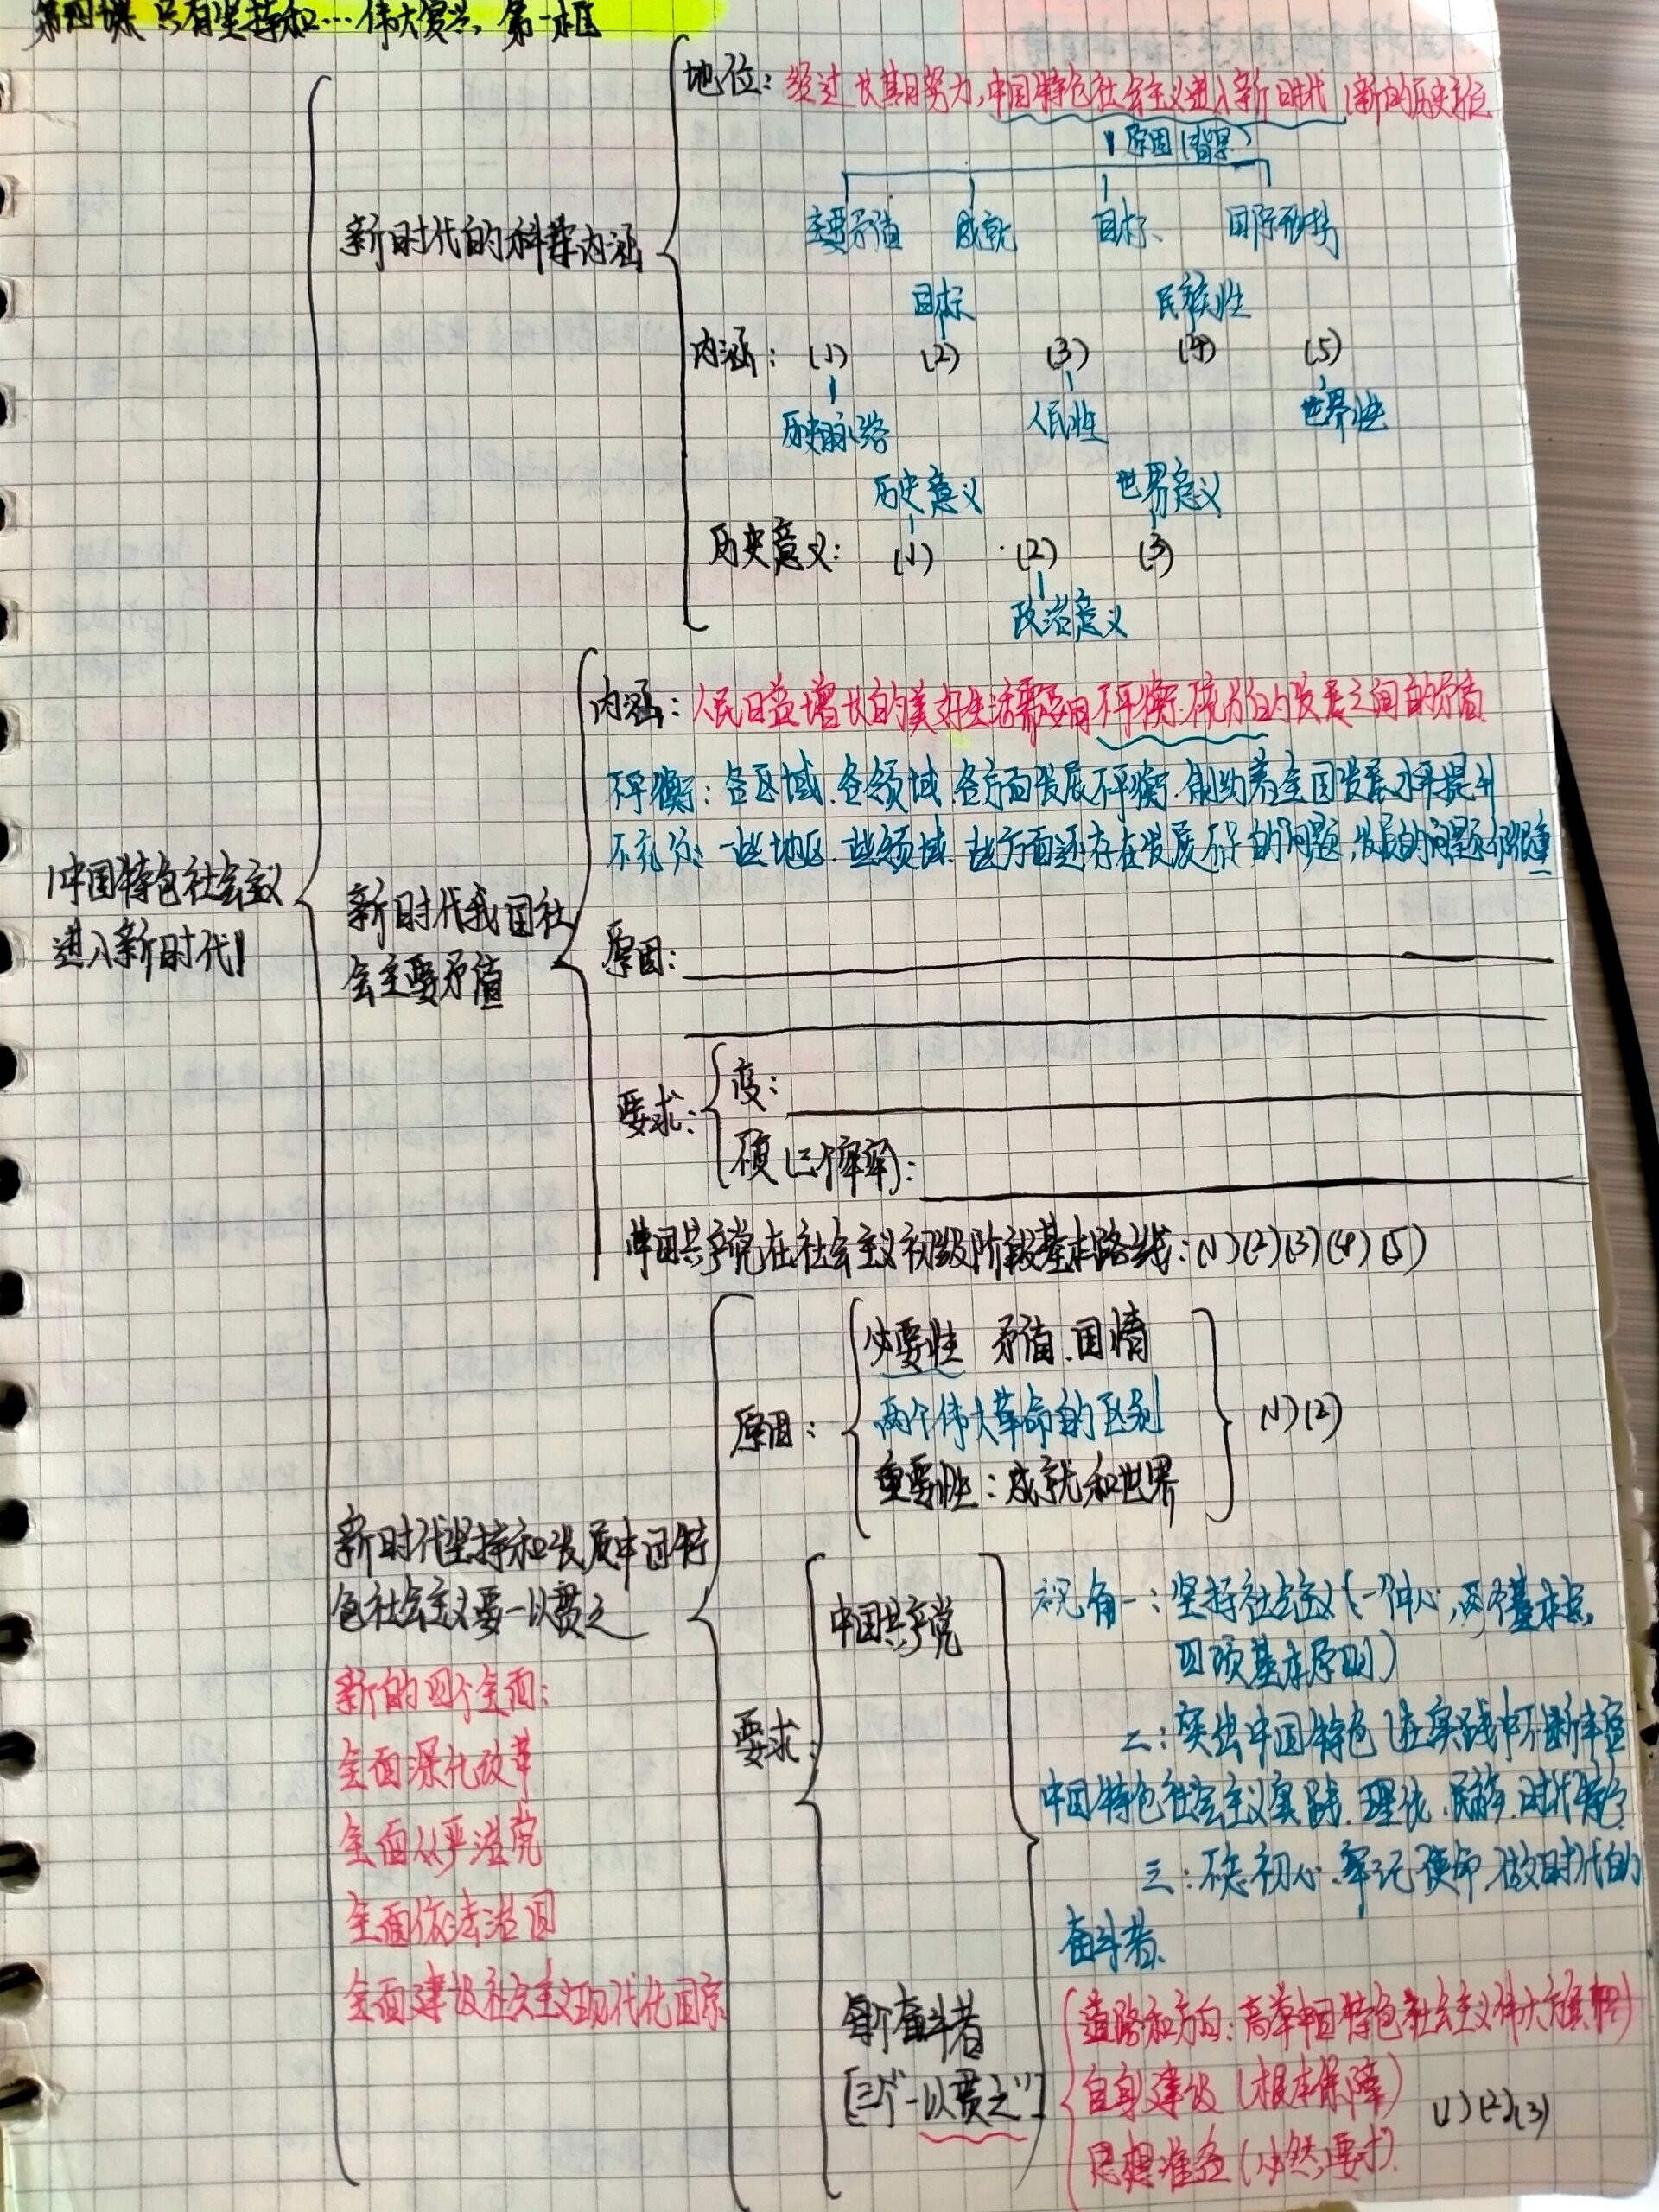 第四课 只有坚持和…伟大复兴, 第一框
中国特色社会主义
进入新时代
新时代的科学内涵
地位: 经过长期努力,中国特色社会主义进入新时代(新的历史方位
原因(背景)
主要矛盾 成就 目标、 国际形势
目标 民族性
内涵: (1) (2) (3) (4) (5)
历史脉络 人民性 世界性
历史意义 世界意义
历史意义: (1) (2) (3)
政治意义
新时代我国社
会主要矛盾
内涵: 人民日益增长的美好生活需要和不平衡.不充分的发展之间的矛盾
不平衡: 各区域.各领域.各方面发展不平衡.制约着全国发展水平提升
不充分: 一些地区.一些领域.一些方面还存在发展不足的问题,发展的问题仍很重
原因:
要求: 变:
不变(三个牢牢):
中国共产党在社会主义初级阶段基本路线: (1)(2)(3)(4)(5)
新时代坚持和发展中国特
色社会主义要一以贯之
新的四个全面:
全面深化改革
全面从严治党
全面依法治国
全面建设社会主义现代化国家
原因: 必要性 矛盾.国情
两个伟大革命的区别
重要性: 成就和世界
(1)(2)
要求: 中国共产党
视角一: 坚持社会主义(一个中心,两个基本点,
四项基本原则)
二: 突出中国特色(在实践中不断丰富
中国特色社会主义实践.理论.民族.时代特色
三: 不忘初心.牢记使命.做时代的
奋斗者.
每个奋斗者
[三个"一以贯之"]
道路和方向: 高举中国特色社会主义伟大旗帜)
自身建设(根本保障)
思想准备(必然要求).
(1)(2)(3)